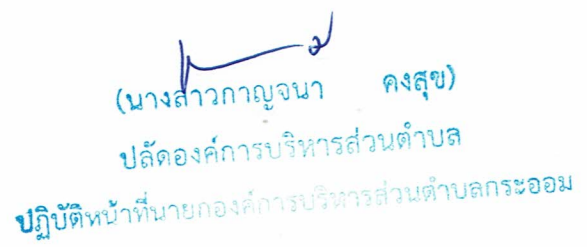 (นางสาวกาญจนา คงสุข)
ปลัดองค์การบริหารส่วนตำบล
ปฏิบัติหน้าที่นายกองค์การบริหารส่วนตำบลกระออม